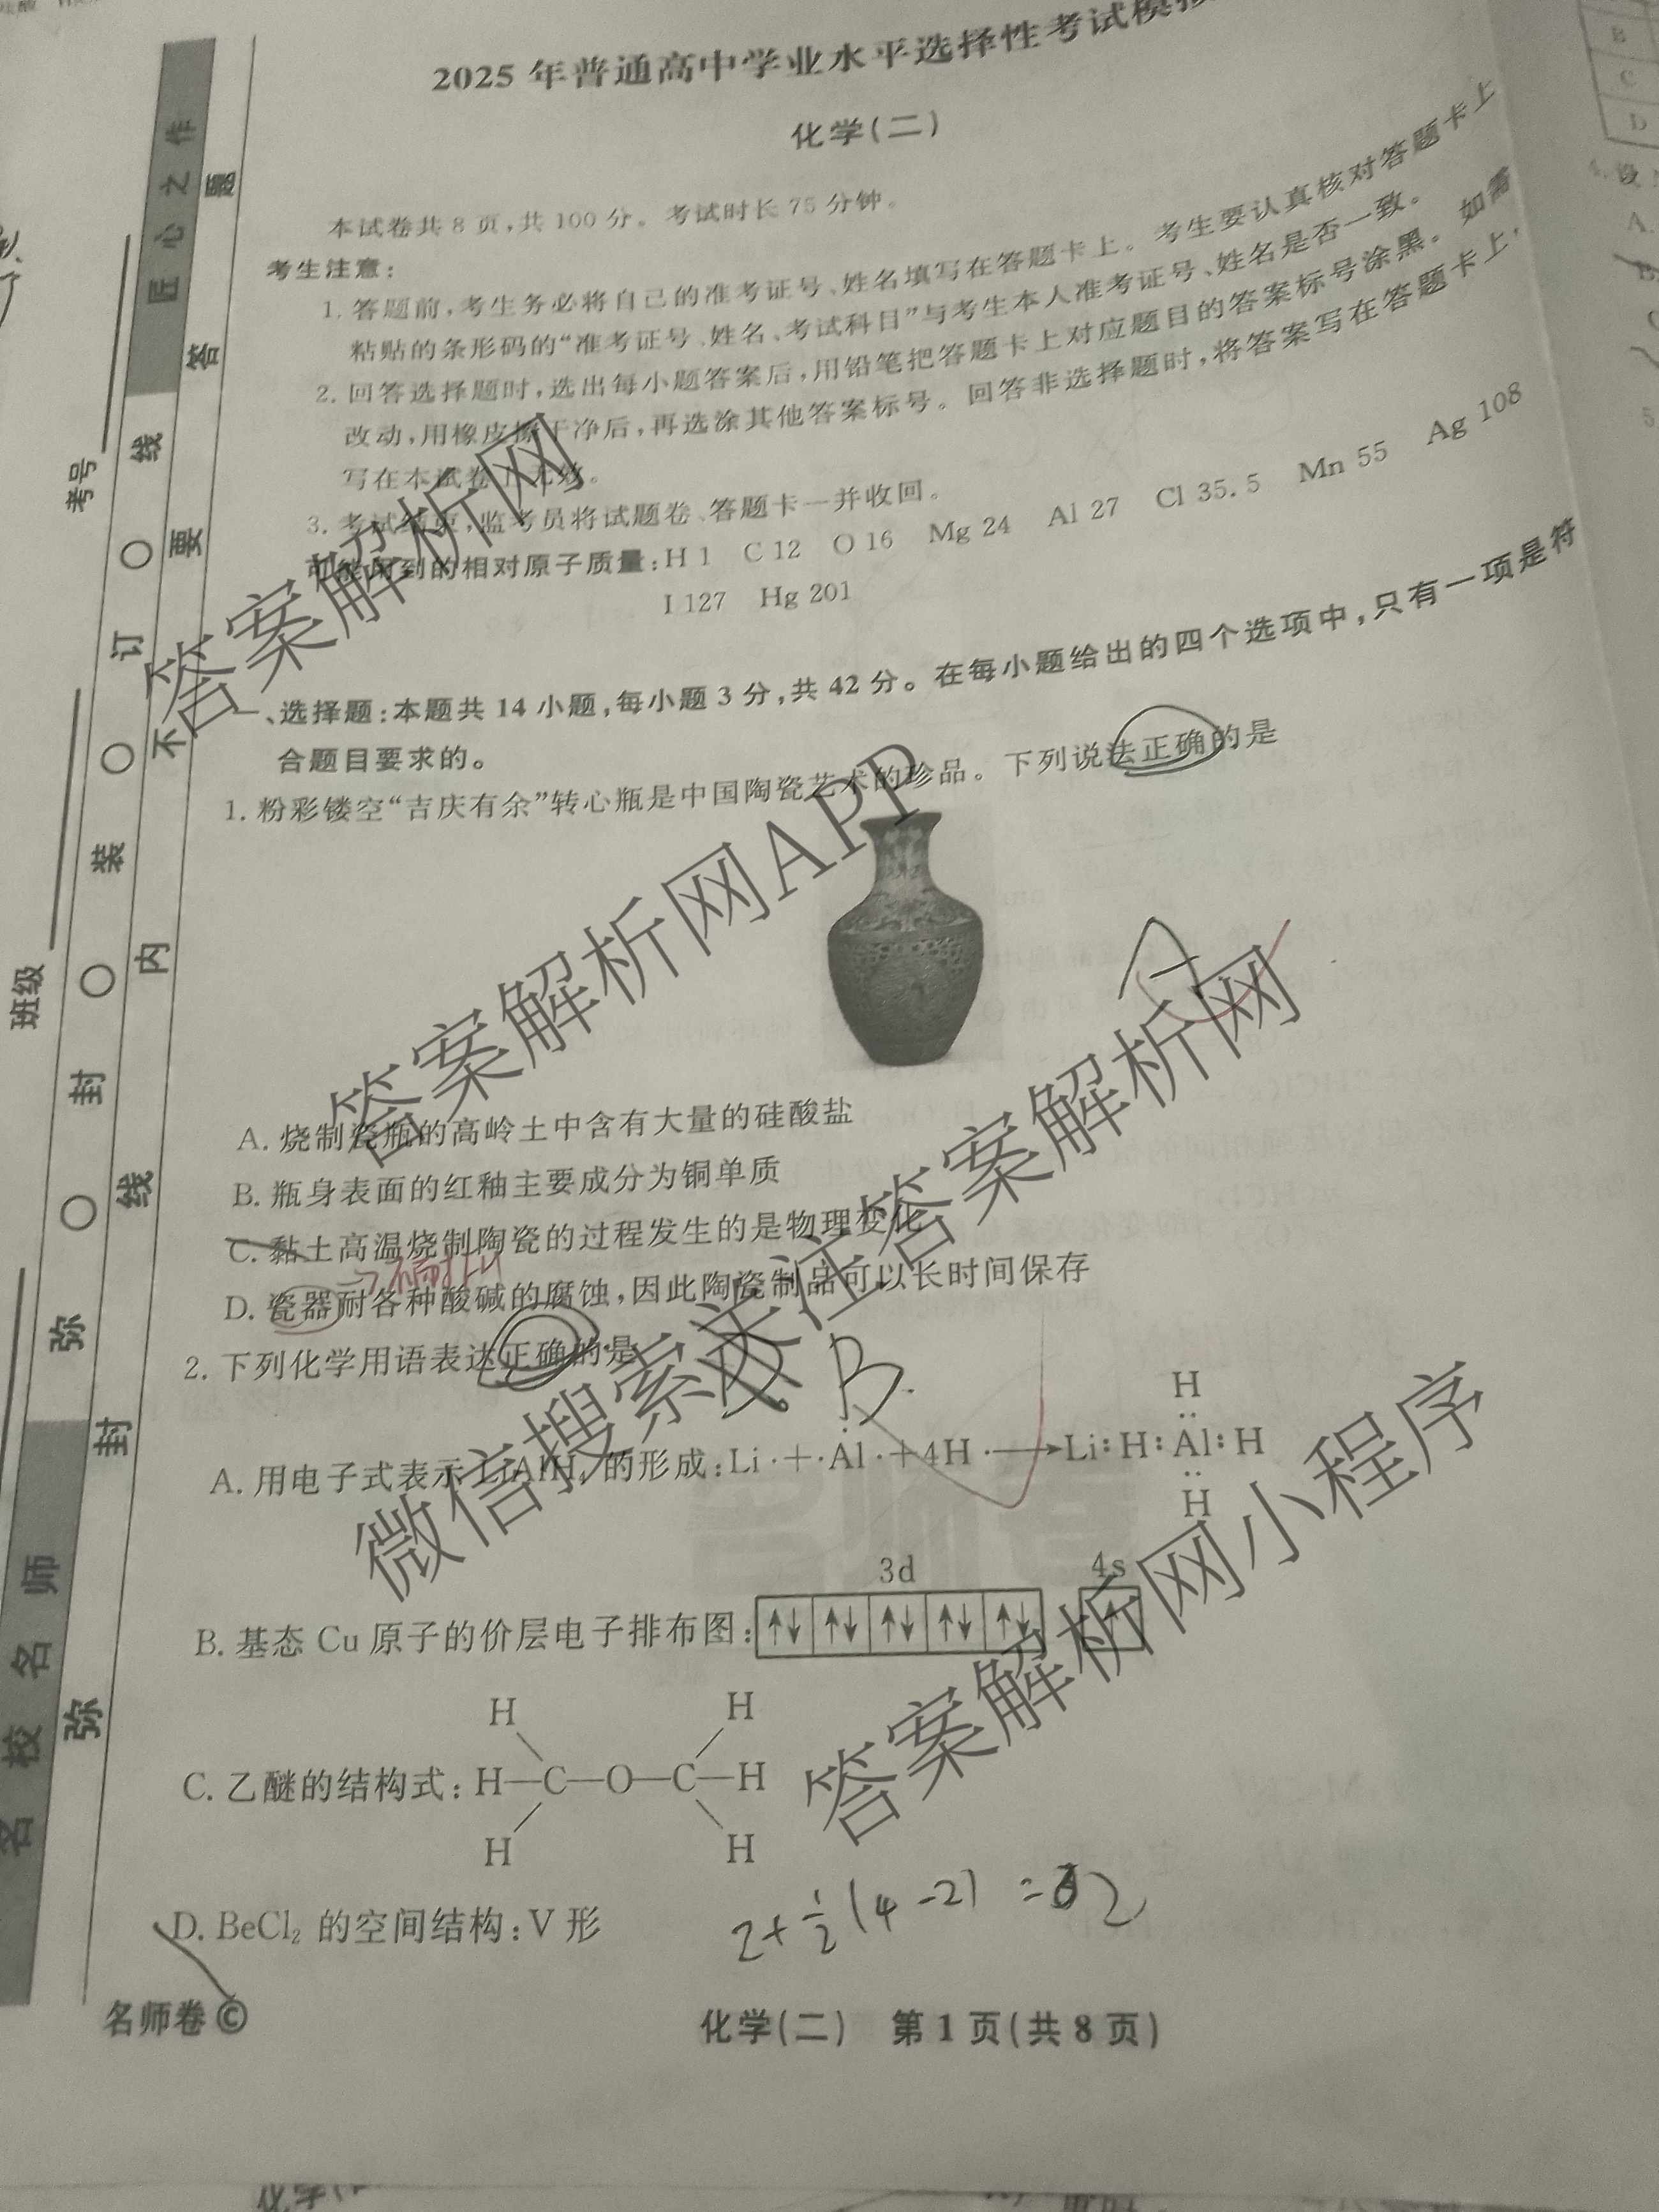 2025 年普通高中学业水平选择性考试模拟
化学(二)
本试卷共 8 页,共 100 分。考试时长 75 分钟。
考生注意:
1. 答题前,考生务必将自己的准考证号、姓名填写在答题卡上。考生要认真核对答题卡上
粘贴的条形码的“准考证号、姓名、考试科目”与考生本人准考证号、姓名是否一致。
2. 回答选择题时,选出每小题答案后,用铅笔把答题卡上对应题目的答案标号涂黑。如需
改动,用橡皮擦干净后,再选涂其他答案标号。回答非选择题时,将答案写在答题卡上,
写在本试卷上无效。
3. 考试结束,监考员将试题卷、答题卡一并收回。
可能用到的相对原子质量:H 1 C 12 O 16 Mg 24 Al 27 Cl 35.5 Mn 55 Ag 108
I 127 Hg 201
一、选择题:本题共 14 小题,每小题 3 分,共 42 分。在每小题给出的四个选项中,只有一项是符
合题目要求的。
1. 粉彩镂空“吉庆有余”转心瓶是中国陶瓷艺术的珍品。下列说法正确的是
A
A. 烧制瓷瓶的高岭土中含有大量的硅酸盐
B. 瓶身表面的红釉主要成分为铜单质
C. 黏土高温烧制陶瓷的过程发生的是物理变化
D. 瓷器耐各种酸碱的腐蚀,因此陶瓷制品可以长时间保存
2. 下列化学用语表达正确的是
B.
A. 用电子式表示 LiAlH₄ 的形成:Li·+·Al·+4H·⟶Li:H:Al:H
H
H
3d 4s
B. 基态 Cu 原子的价层电子排布图:↑↓ ↑↓ ↑↓ ↑↓ ↑↓ ↑
H H
C. 乙醚的结构式:H—C—O—C—H
H H
D. BeCl₂ 的空间结构:V 形
2+½(4-2)=2
名师卷©
化学(二) 第 1 页(共 8 页)
匠心之作
名校名师
考号
班级
弥 封 装 订 线
弥 封 线 内 不 要 答 题
答案解析网
答案解析网APP
微信搜索关注答案解析网
答案解析网小程序